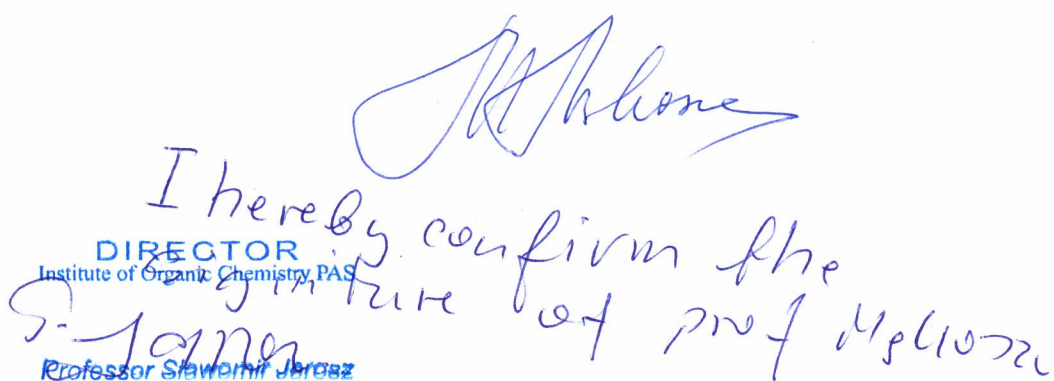 I hereby confirm the
signature of prof Mąkosza
DIRECTOR
Institute of Organic Chemistry, PAS
S. Jarosz
Professor Sławomir Jarosz